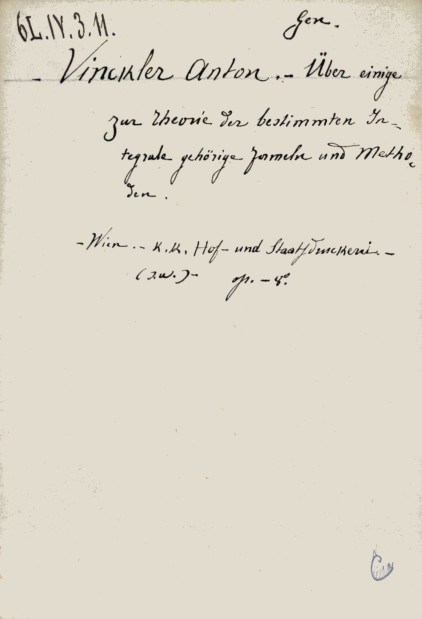 6L.IV.3.11.
Gen.
- Vinckler Anton. - Über einige
zur Theorie der bestimmten In-
tegrale gehörige Formeln und Metho-
den.
- Wien. - K. K. Hof- und Staatsdruckerei. -
op. - 8º.